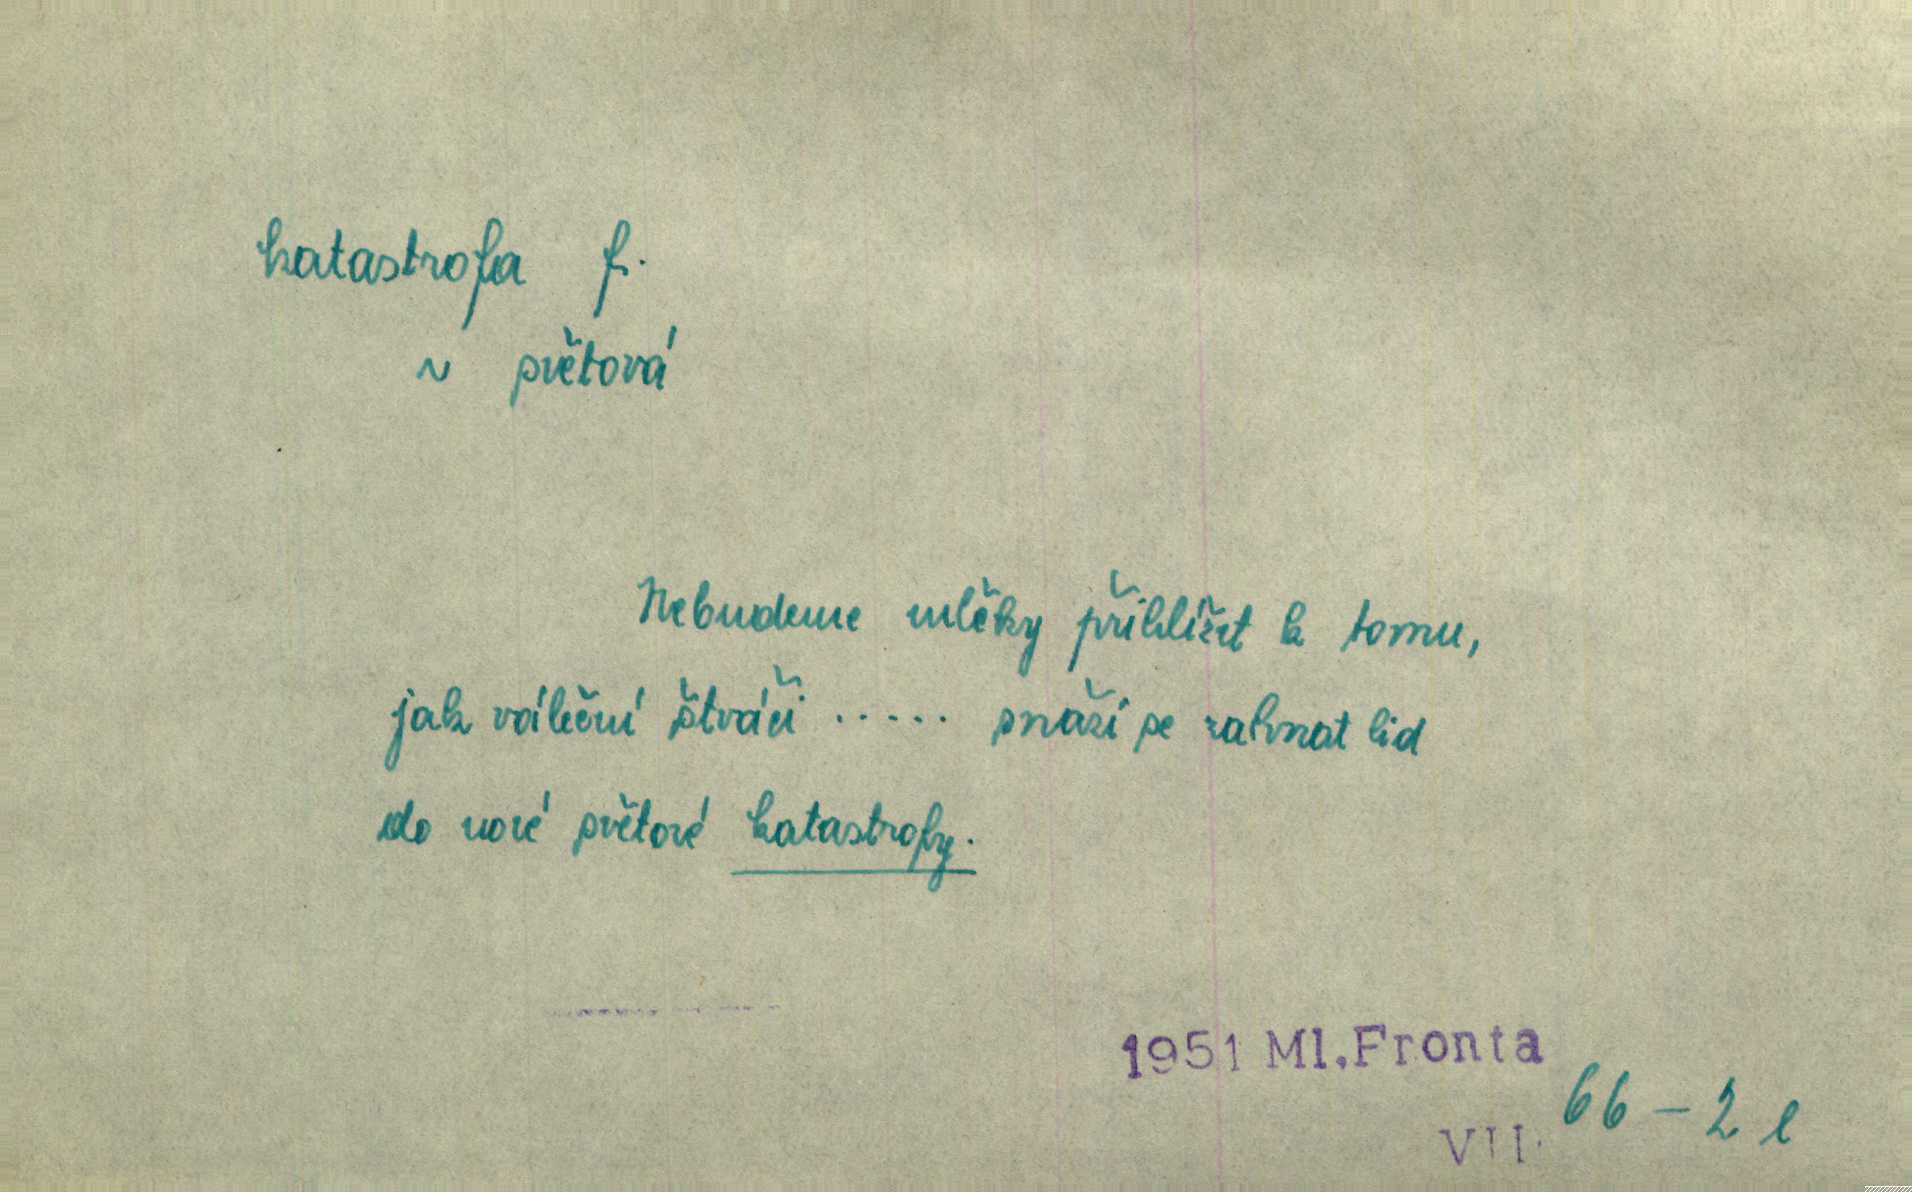 katastrofa f.
~ světová
Nebudeme mlčky přihlížet k tomu,
jak váleční štváči ..... snaží se zahnat lid
do nové světové katastrofy.
1951 Ml.Fronta
66 – 2 l
VII.